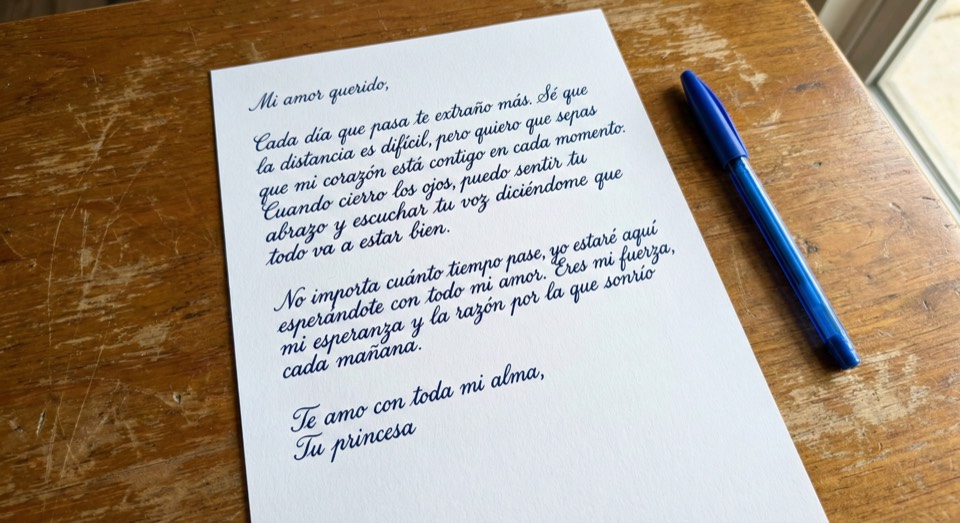 Mi amor querido,
Cada día que pasa te extraño más. Sé que
la distancia es difícil, pero quiero que sepas
que mi corazón está contigo en cada momento.
Cuando cierro los ojos, puedo sentir tu
abrazo y escuchar tu voz diciéndome que
todo va a estar bien.
No importa cuánto tiempo pase, yo estaré aquí
esperándote con todo mi amor. Eres mi fuerza,
mi esperanza y la razón por la que sonrío
cada mañana.
Te amo con toda mi alma,
Tu princesa